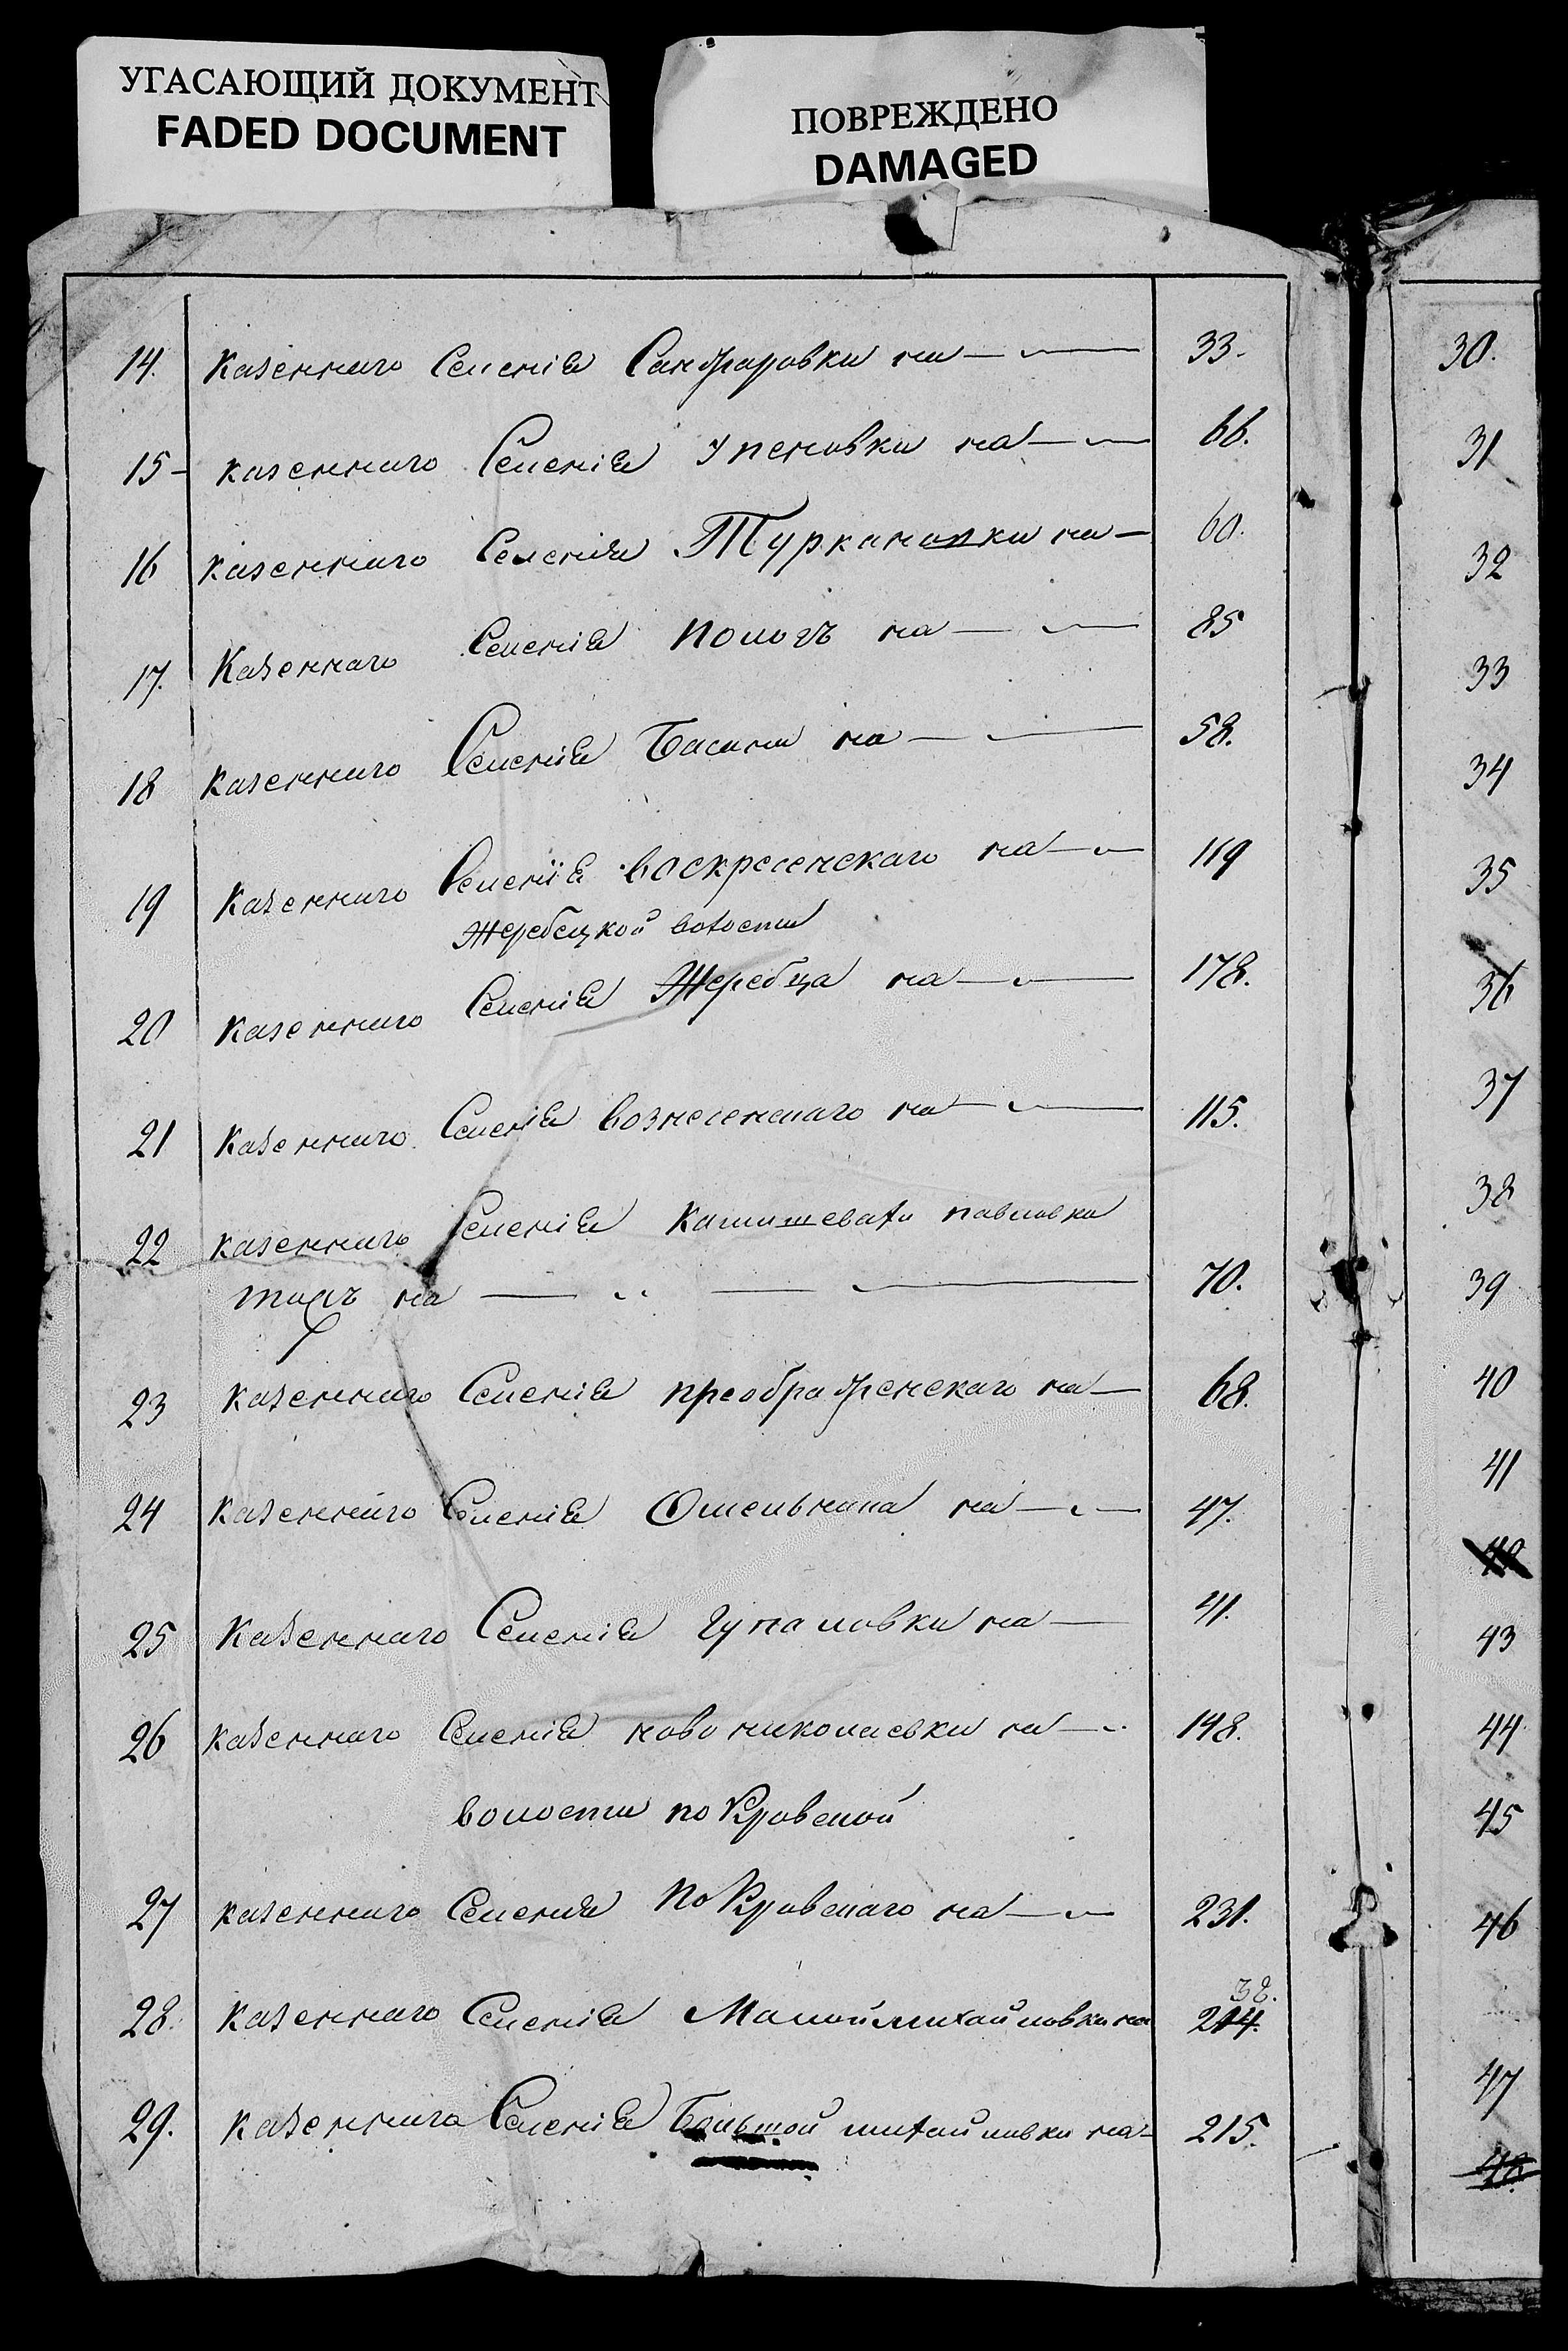 УГАСАЮЩИЙ ДОКУМЕНТ
FADED DOCUMENT
ПОВРЕЖДЕНО
DAMAGED
14. Казеннаго Селенія Санжаровки на — 33.
15 - казеннаго Селенія Успеновки на — 66.
16 казеннаго Селенія Туркановки на — 60.
17. Казеннаго Селенія Пологъ на — 85
18 казеннаго Селенія Басани на — 58.
19 Казеннаго Селенія Воскресенскаго на — 119
Жеребецкой волости
20 казеннаго Селенія Жеребца на — 178.
21 Казеннаго Селенія Вознесенскаго на — 115.
22 казеннаго Селенія камишевати павловки
тожъ на — 70.
23 Казеннаго Селенія преображенскаго на — 68.
24 Казеннаго Селенія Омельника на — 47.
25 Казеннаго Селенія гупаловки на — 41.
26 Казеннаго Селенія ново николаевки на — 148.
волости поКровской
27 казеннаго Селенія ПоКровскаго на — 231.
38.
28. Казеннаго Селенія Малоймихайловки на 214.
29. Казеннаго Селенія Большой михайловки на - 215.
30.
31
32
33
34
35
36
37
38
39
40
41
42
43
44
45
46
47
48